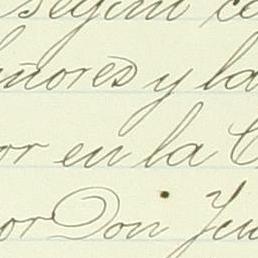 segun ce
ñores y la
or en la C
or Don Jen